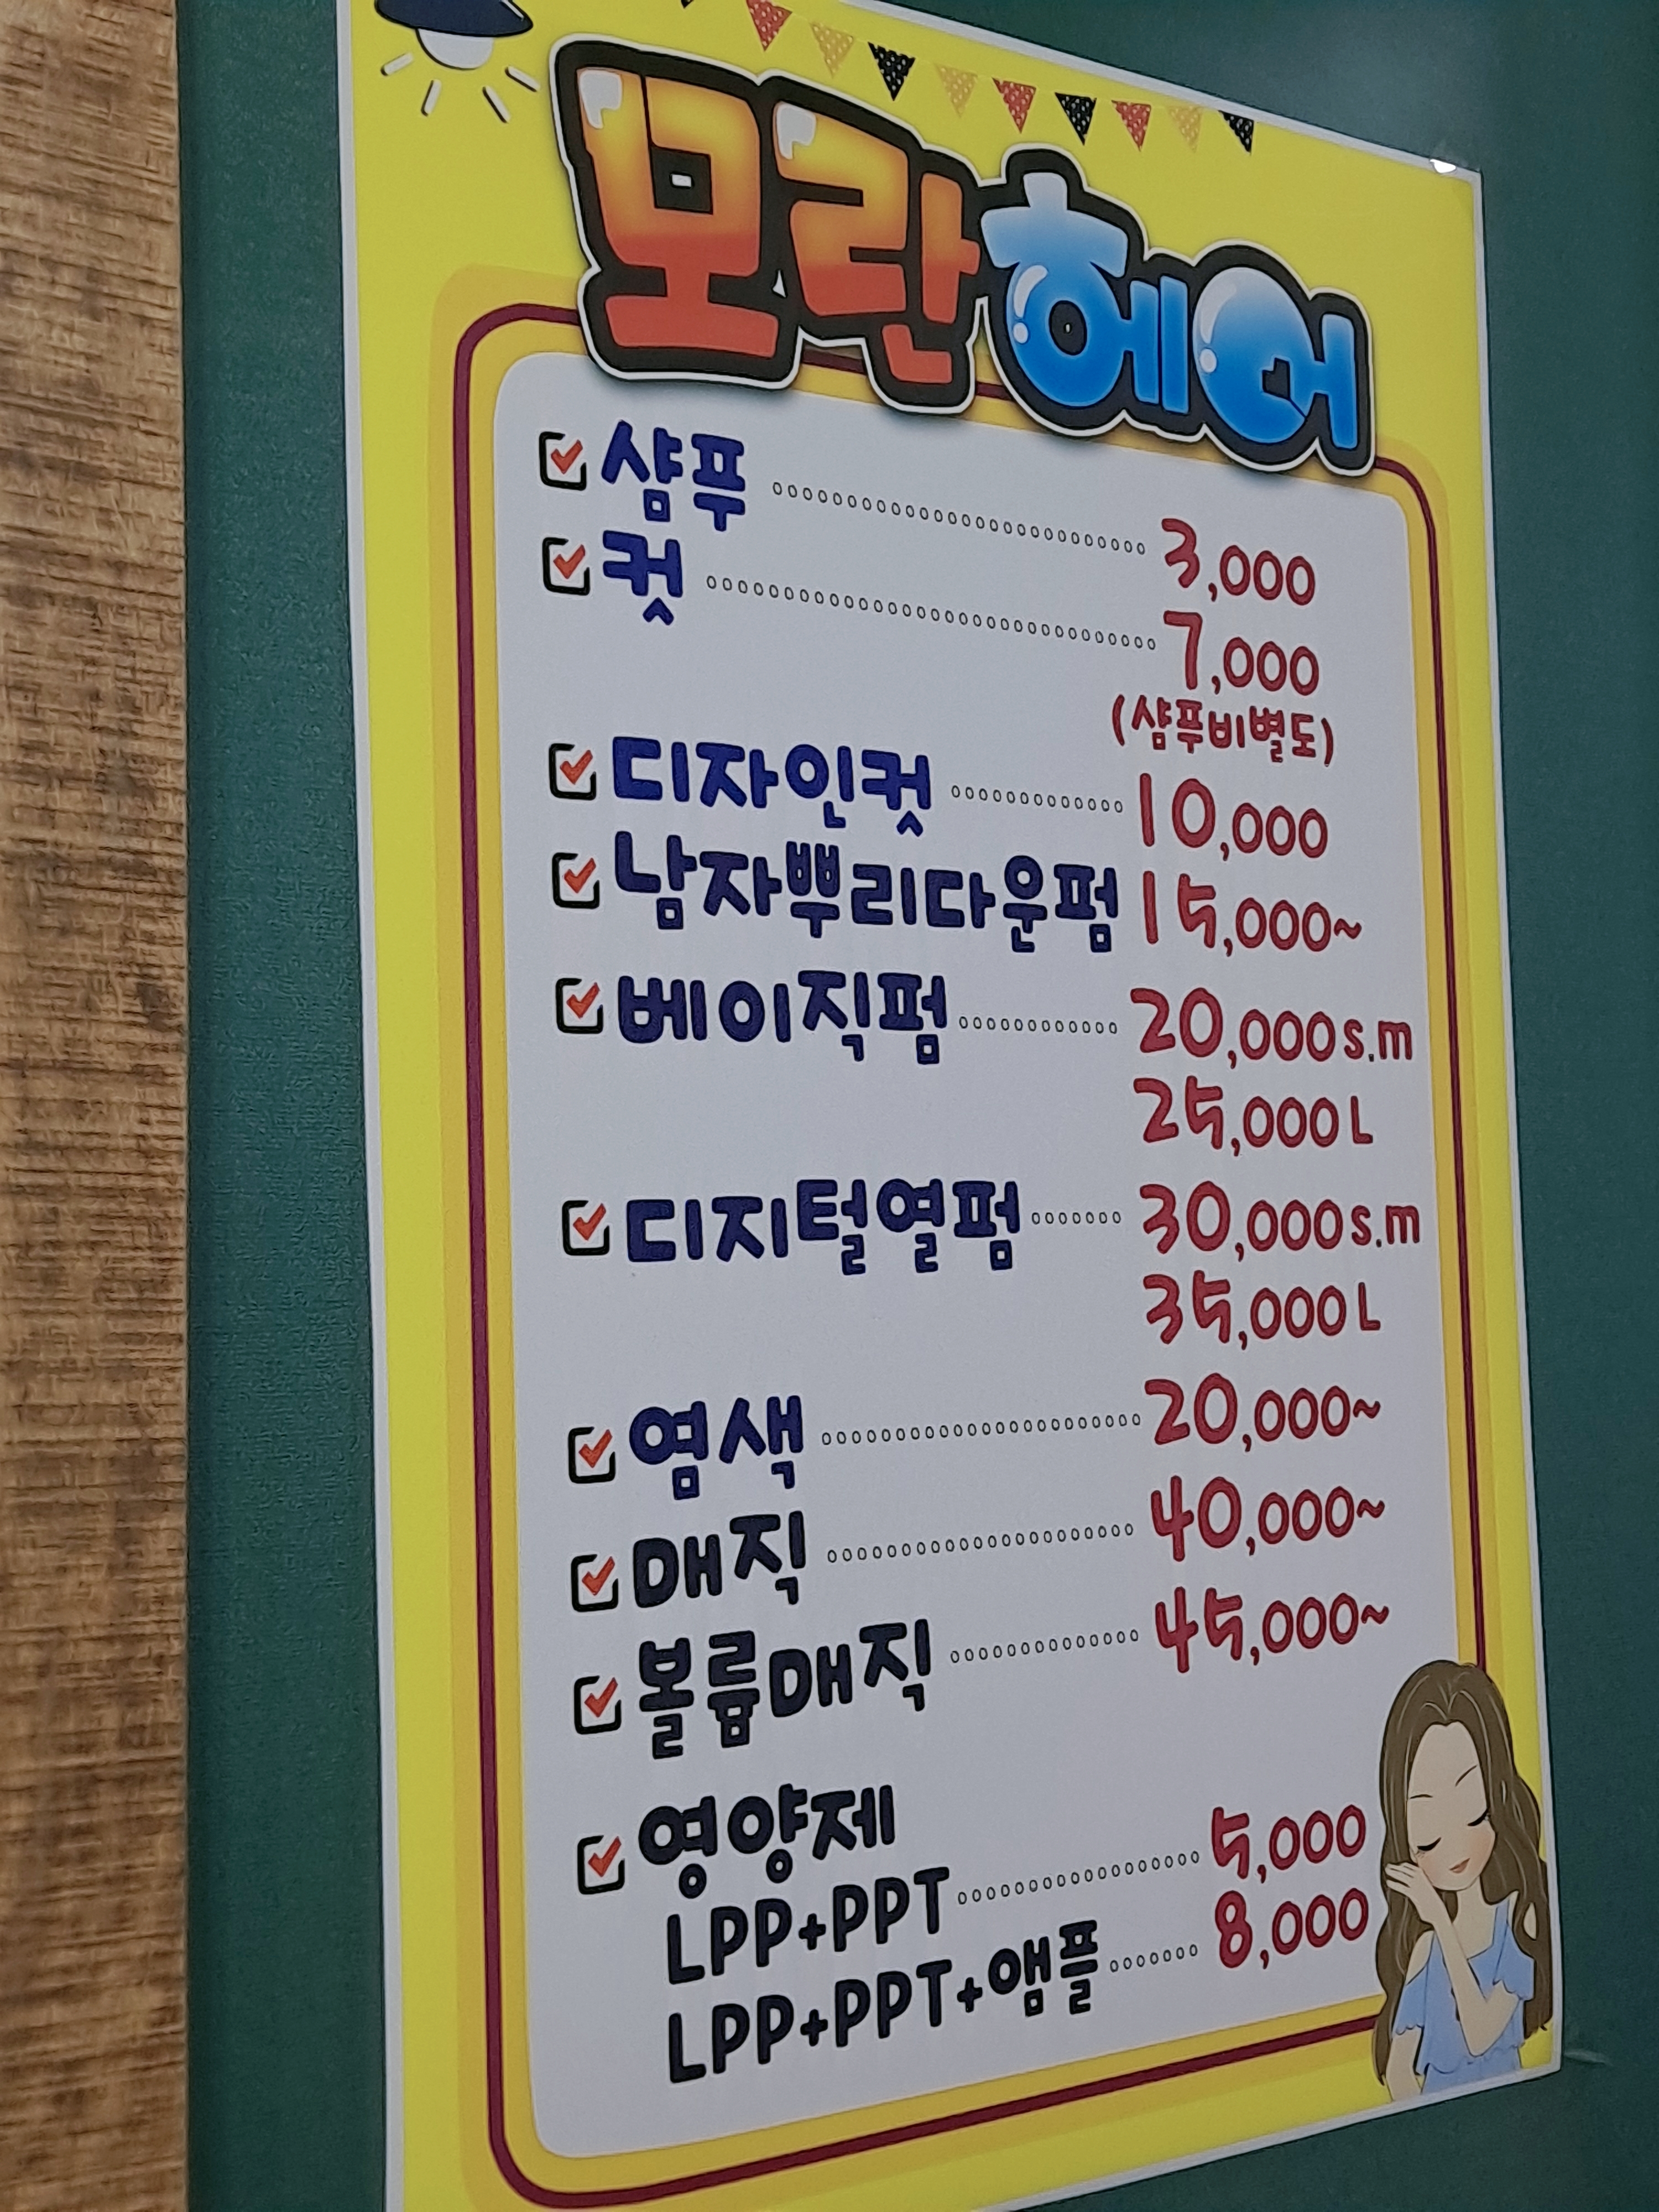 모란헤어
샴푸 3,000
컷 7,000
(샴푸비별도)
디자인컷 10,000
남자뿌리다운펌 15,000~
베이직펌 20,000 s.m
25,000 L
디지털열펌 30,000 s.m
35,000 L
염색 20,000~
매직 40,000~
볼륨매직 45,000~
영양제
LPP+PPT 5,000
LPP+PPT+앰플 8,000